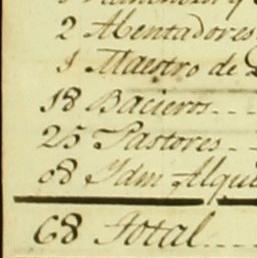 2 Abentadores
1 Maestro de
18 Bacieros
25 Pastores
08 Idm Alqui
68 Total